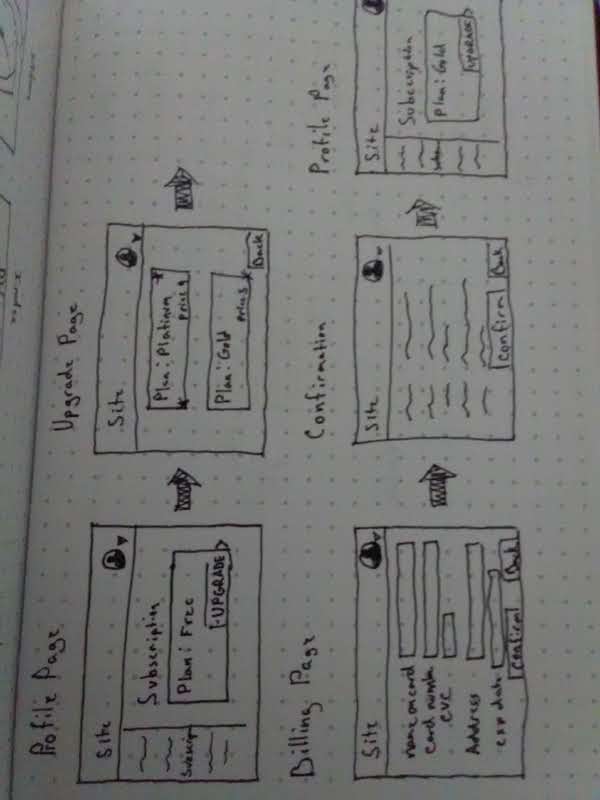 Profile Page
Site
Subscription
Plan: Free
Subscrip
UPGRADE
Upgrade Page
Site
Plan: Platinum
Plan: Gold
Back
Billing Page
Site
name on card
card number
cvc
Address
exp date
Confirm
Back
Confirmation
Site
Confirm
Back
Profile Page
Site
Subscription
Plan: Gold
UPGRADE